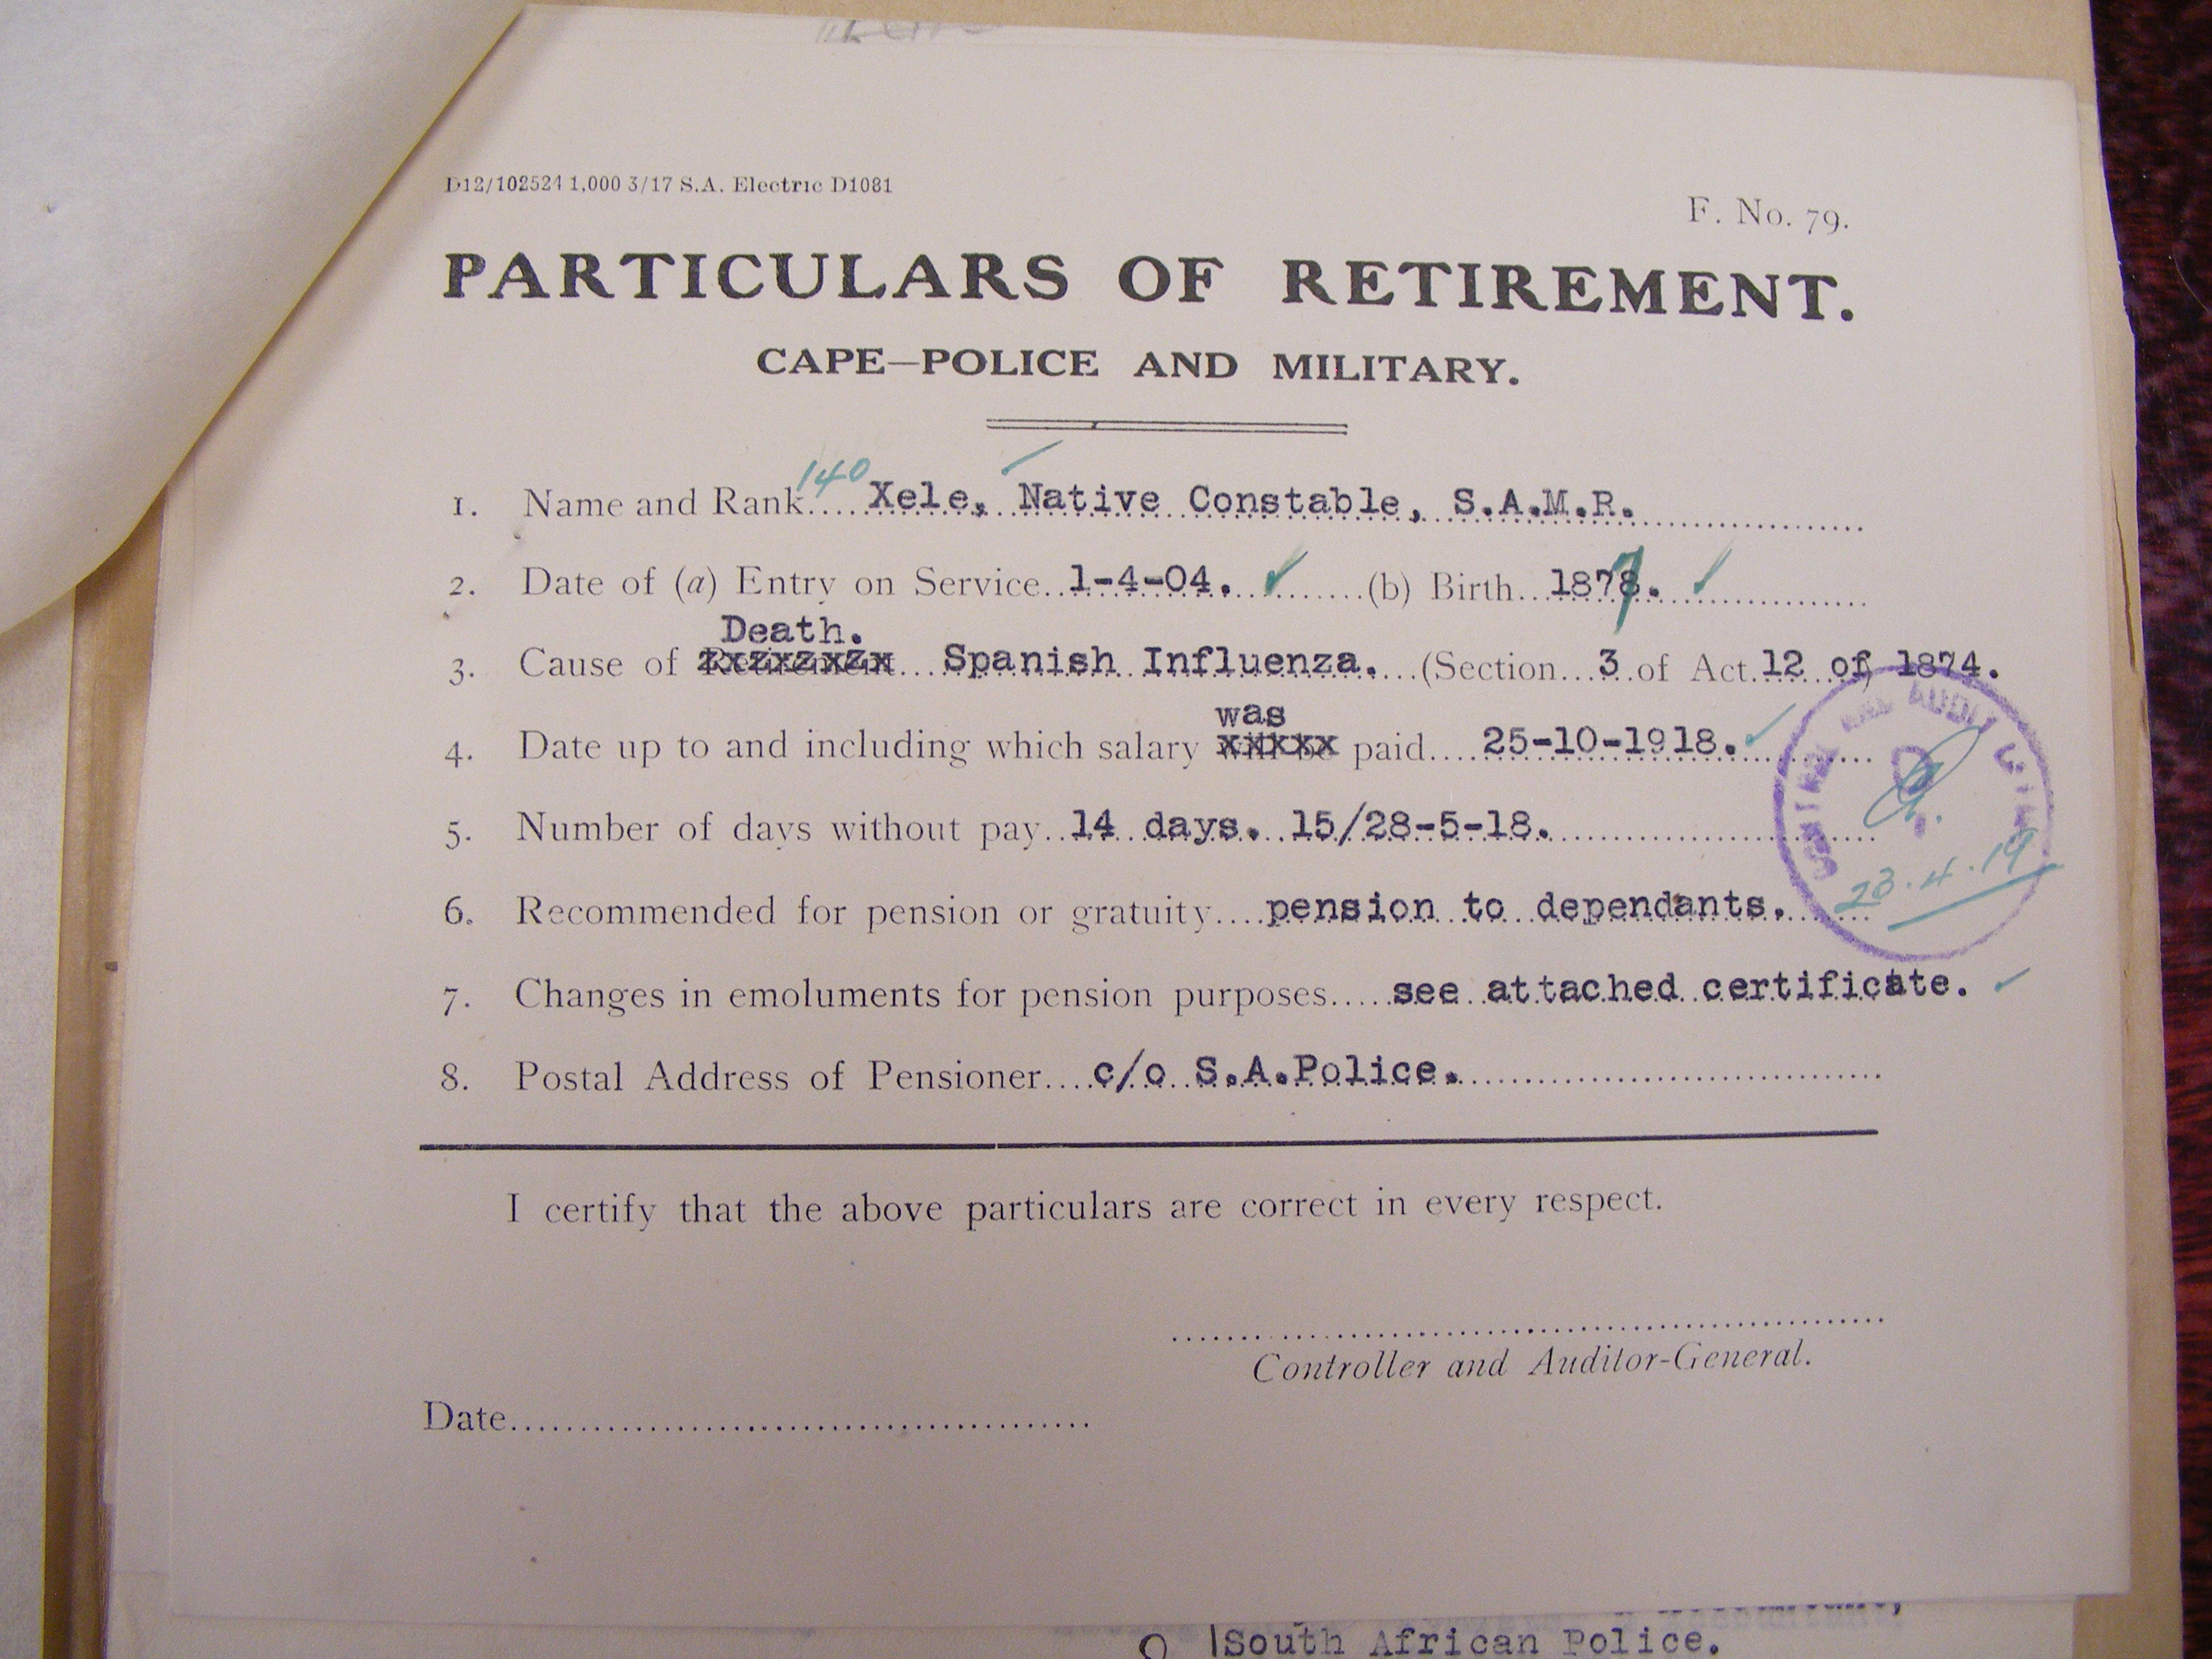 D12/102524 1,000 3/17 S.A. Electric D1081
F. No. 79.
PARTICULARS OF RETIREMENT.
CAPE—POLICE AND MILITARY.
1. Name and Rank....140 Xele, Native Constable, S.A.M.R.
2. Date of (a) Entry on Service..1-4-04. ✓ (b) Birth...1878. 7 ✓
Death.
3. Cause of Retirement....Spanish Influenza....(Section...3..of Act.12 of 1874.
was
4. Date up to and including which salary will be paid....25-10-1918. ✓
5. Number of days without pay..14 days. 15/28-5-18.
23.4.19
6. Recommended for pension or gratuity....pension to dependants.
7. Changes in emoluments for pension purposes.....see attached certificate. ✓
8. Postal Address of Pensioner....c/o S.A.Police.
I certify that the above particulars are correct in every respect.
Controller and Auditor-General.
Date
South African Police.